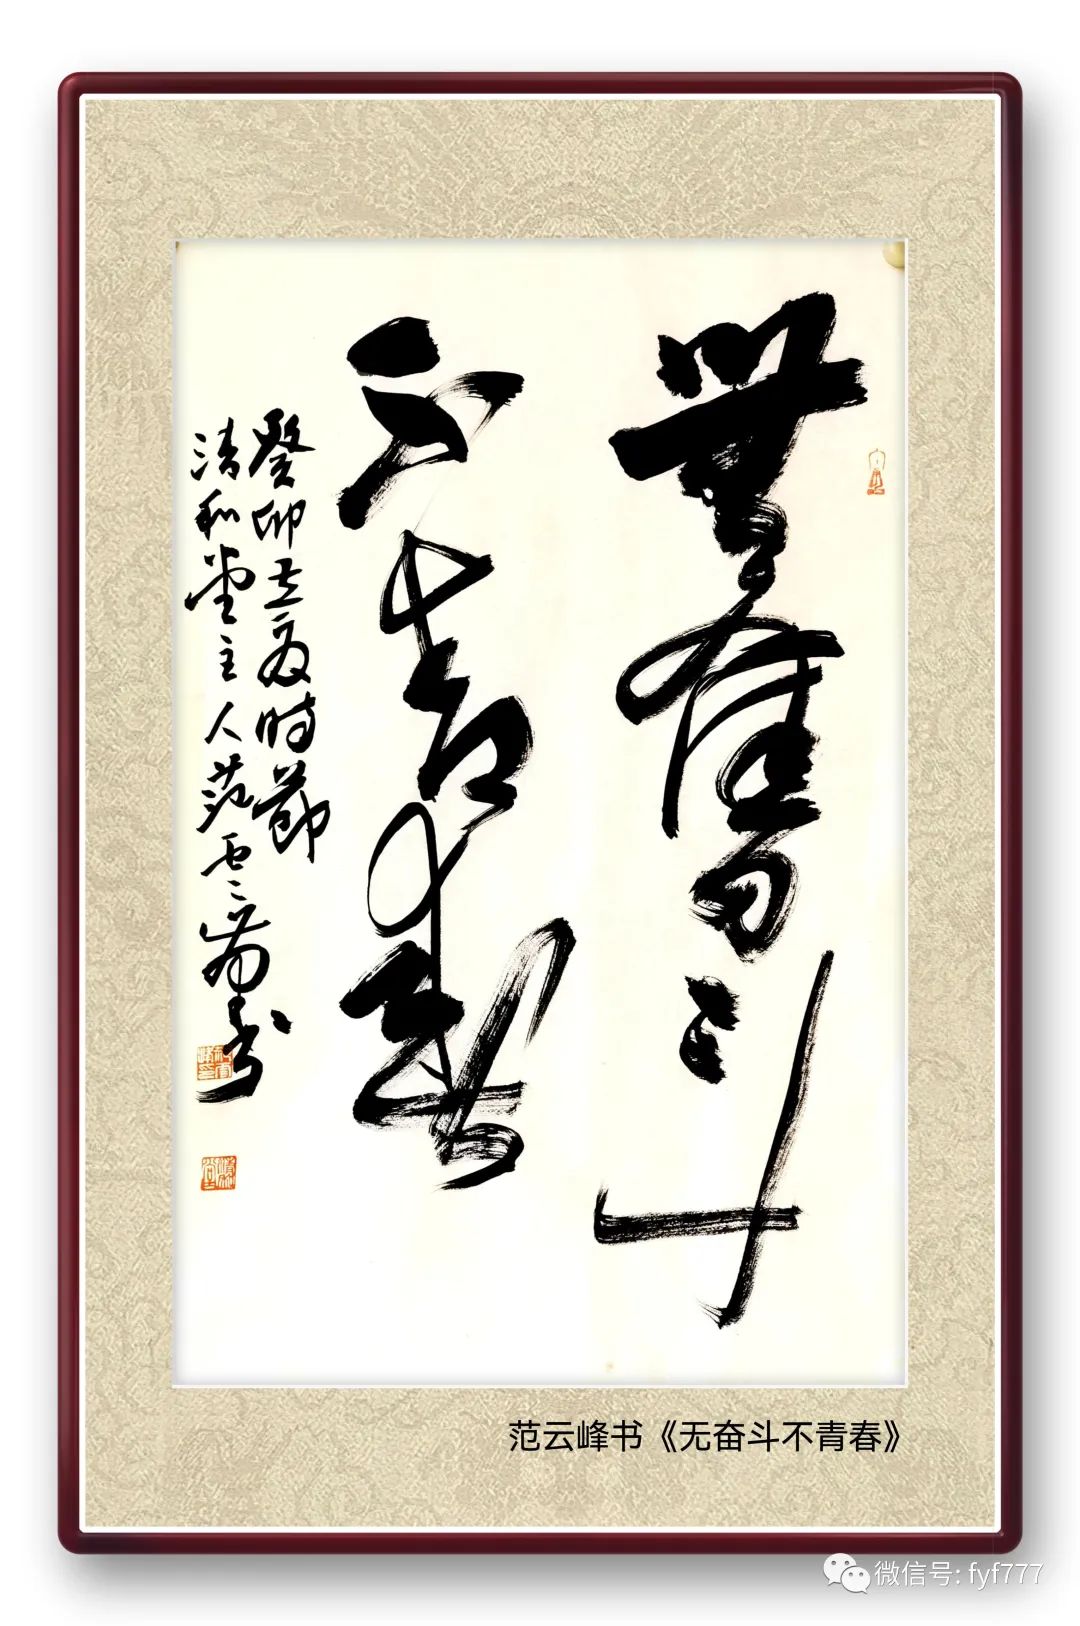 無奮斗
不青春
癸卯立夏時節
清和堂主人范云峰书
范云峰书《无奋斗不青春》
微信号: fyf777